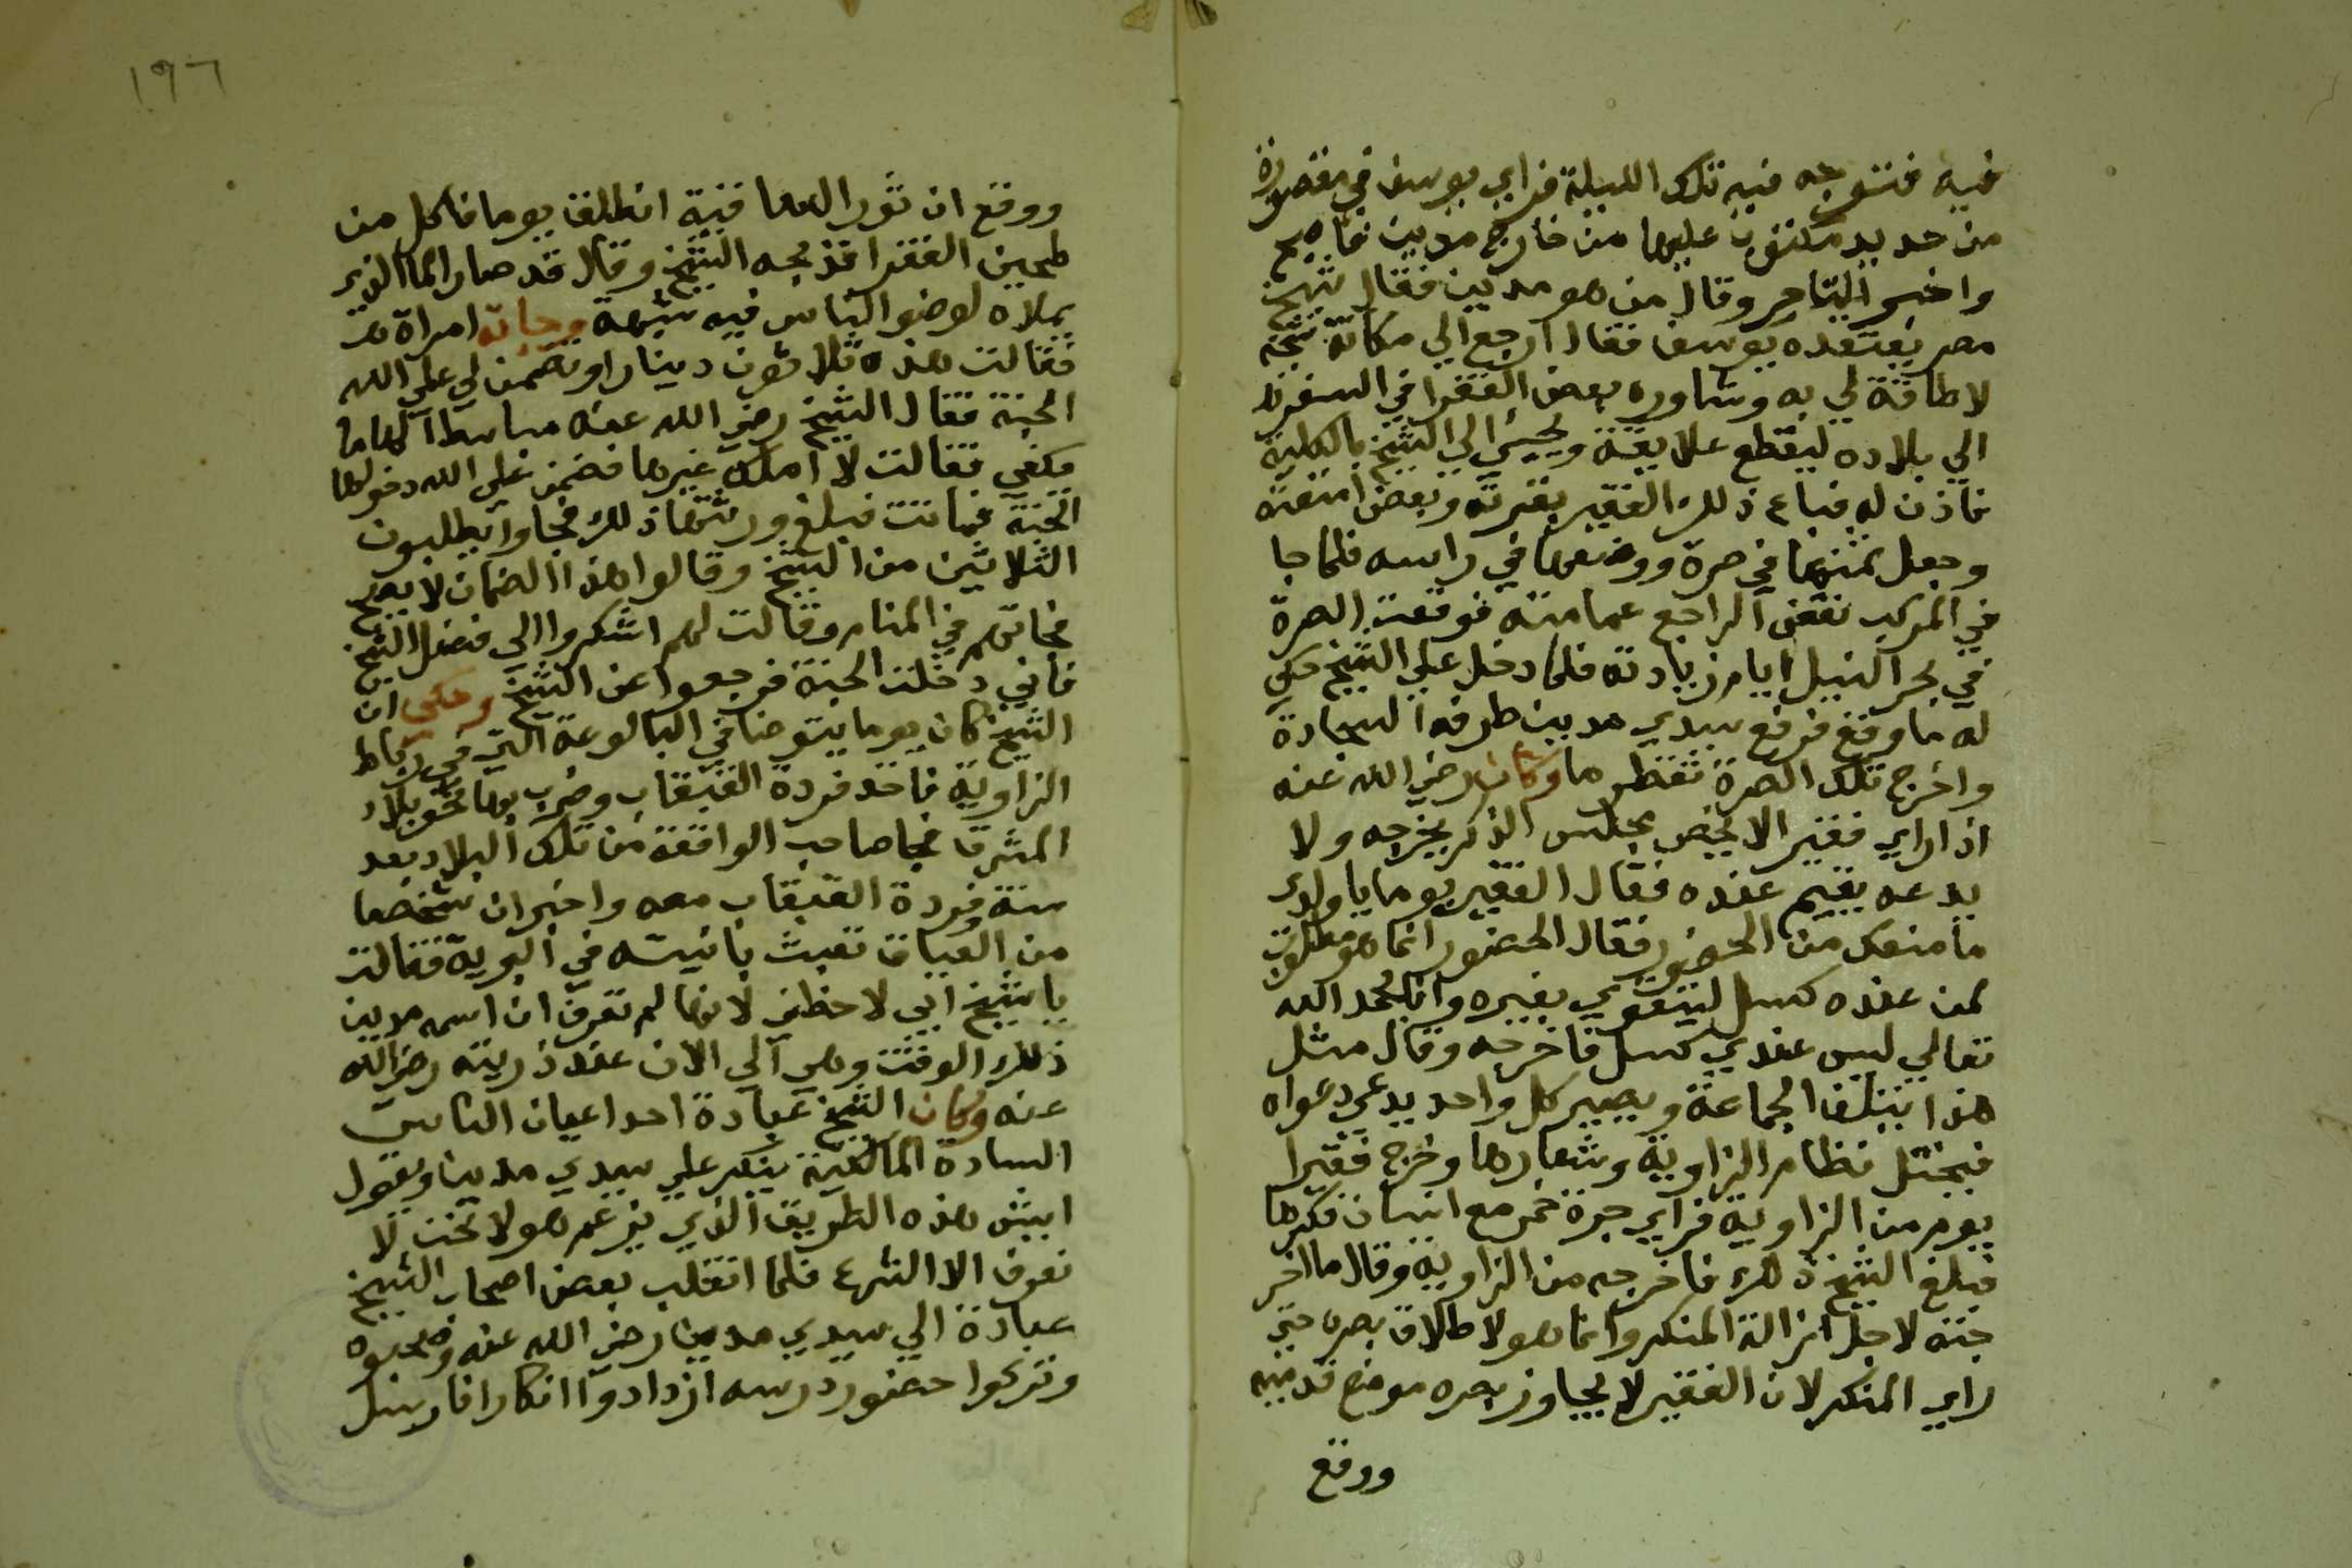 فيه فتوجه فيه تلك الليلة فراي يوسف في مقصورة
من حديد مكتوب عليها من خارج مدين فاصبح
واخبر التاجر وقال من هو مدين فقال شيخ
مصر يعتقده يوسف فقال ارجع الي مكانك شيخه
لا طاقة لي به وشاوره بعض الفقرا في السفر
الي بلاده ليقطع علايقه ويجيي الي الشيخ بالكلية
فاذن له فباع ذلك الفقير بقرته وبعض امتعته
وجعل ثمنها في صرة ووضعها في راسه فلما جا
في المركب نفض الراجع عمامته فوقعت الصرة
في بحر النيل ايام زيادته فلما دخل علي الشيخ حكي
له ما وقع فرفع سيدي مدين طرف السجادة
واخرج تلك الصرة تقطر ما وكان رضي الله عنه
اذا راي فقيرا لا يحضر مجلس الذكر يخرجه ولا
يدعه يقيم عنده فقال الفقير يوما يا ولدي
ما منعك من الحضور فقال الحضور انما هو مطلوب
لمن عنده كسل ليتقوي بغيره وانا بحمد الله
تعالي ليس عندي كسل فاخرجه وقال مثل
هذا يتلف الجماعة ويصير كل واحد يدعي دعواه
فيختل نظام الزاوية وشعارها وخرج فقير
يوم من الزاوية فراي جرة خمر مع انسان فكسرها
فبلغ الشيخ ذلك فاخرجه من الزاوية وقال ما اخر
جته لاجل ازالة المنكر وانما هو لاطلاق بصره حتي
راي المنكر لان الفقير لا يجاوز بصره موضع قدميه
ووقع
١٩٦
ووقع ان ثور الساقية انطلق يوما فاكل من
طحين الفقرا فذبحه الشيخ وقال قد صار الما الذي
يملاه لوضو الناس فيه شبهة وجاته امراة
فقالت هذه ثلاثون دينارا وتضمن لي علي الله
الجنة فقال الشيخ رضي الله عنه مباسطا لها ما
يكفي فقالت لا املك غيرها فضمن علي الله دخولها
الجنة فماتت فبلغ ورثتها ذلك فجاوا يطلبون
الثلاثين من الشيخ وقالوا هذا الضمان لا يصح
فجاتهم في المنام وقالت لهم اشكروا الي فضل الشيخ
فاني دخلت الجنة فرجعوا عن الشيخ وحكي ان
الشيخ كان يوما يتوضا في البالوعة التي في رباط
الزاوية فاخذ فردة القبقاب وضرب بها نحو بلاد
المشرق فجا صاحب الواقعة من تلك البلاد بعد
سنة وفردة القبقاب معه واخبر ان شخصا
من العياق تعبث بابنته في البرية فقالت
يا شيخ ابي لاحظني لانها لم تعرف ان اسمه مدين
ذلك الوقت وهي الي الان عند ذريته رضي الله
عنه وكان الشيخ عبادة احد اعيان الناس
السادة المالكية ينكر علي سيدي مدين ويقول
ايش هذه الطريق الذي يزعم هولا نحن لا
نعرف الا الشرع فلما انقلب بعض اصحاب الشيخ
عبادة الي سيدي مدين رضي الله عنه وصحبوه
وتركوا حضور درسه ازدادوا انكارا فارسل